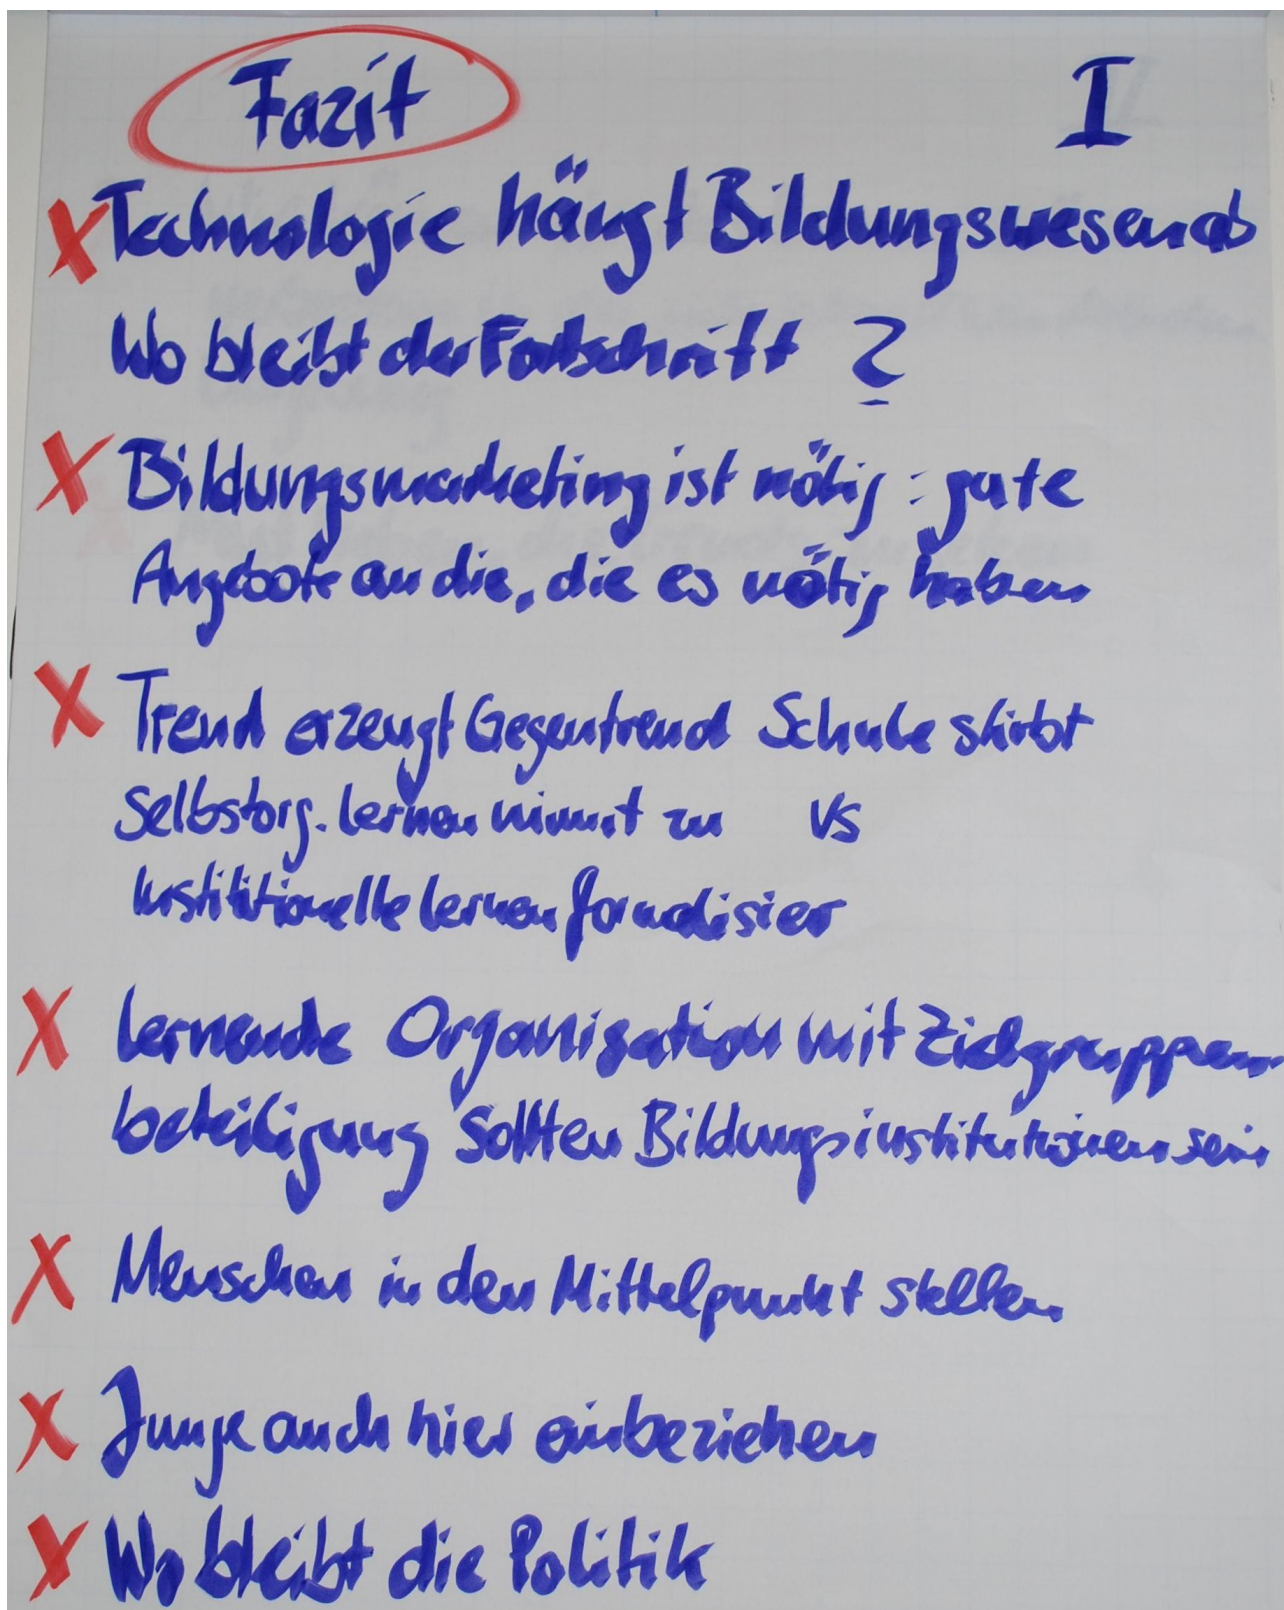 Fazit I
Technologie hängt Bildungswesen ab
Wo bleibt der Fortschritt ?
Bildungsmarketing ist nötig : gute
Angebote an die, die es nötig haben
Trend erzeugt Gegentrend Schule stirbt
Selbstorg. lernen nimmt zu vs
Instititionelle lernen formalisier
lernende Organisation mit Zielgruppen
beteiligung sollten Bildungsinstitutionen sein
Menschen in den Mittelpunkt stellen
Junge auch hier einbeziehen
Wo bleibt die Politik